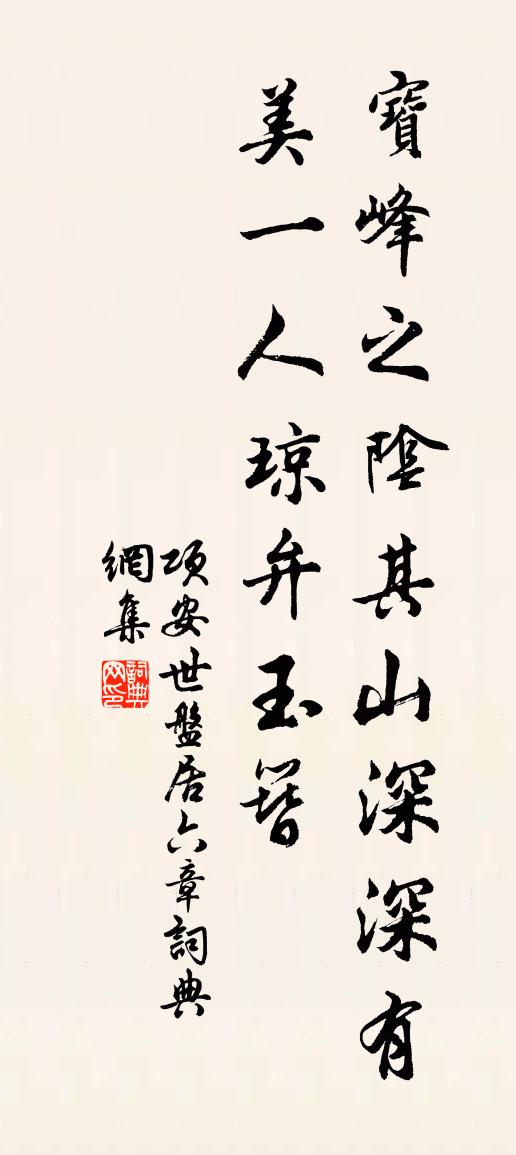 寶峰之陰其山深深有
美一人瓊弁玉簪
項安世盤居六章詞典
網集
詞典
网印